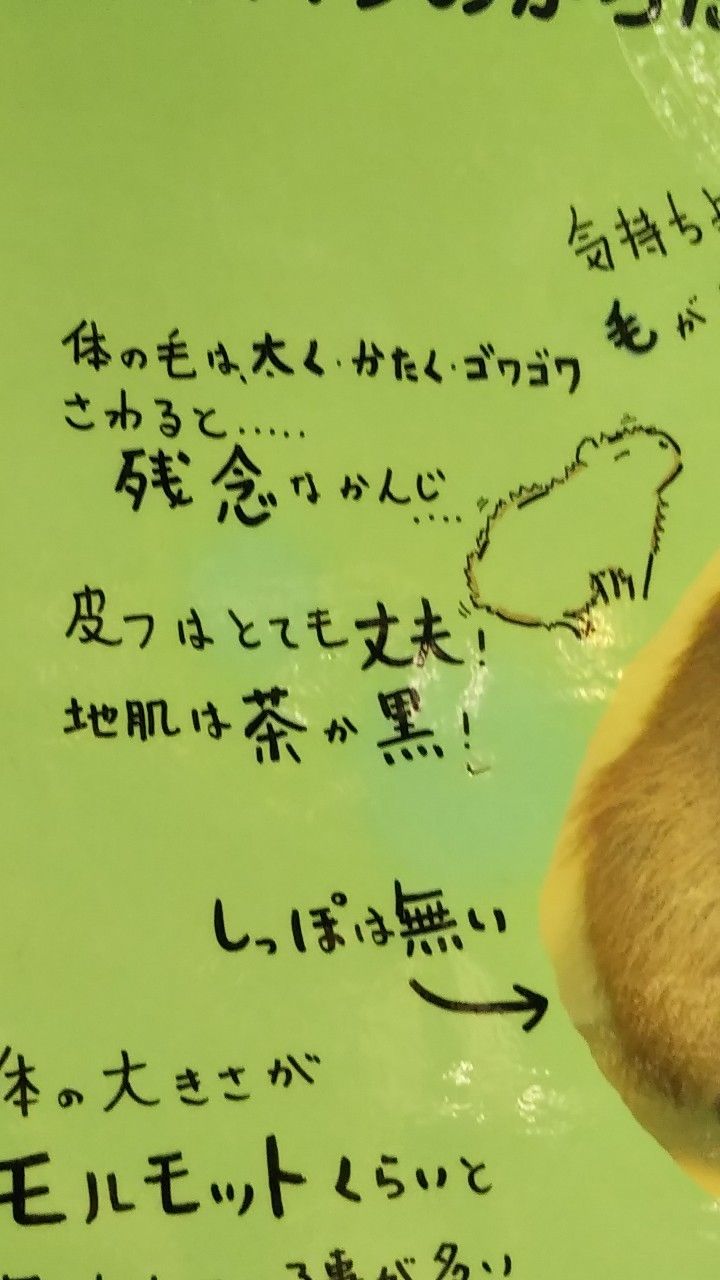 気持ち
毛が
体の毛は、太く・かたく・ゴワゴワ
さわると.....
残念なかんじ
....
皮フはとても丈夫!
地肌は茶か黒!
しっぽは無い
体の大きさが
モルモットくらいと
事が多い